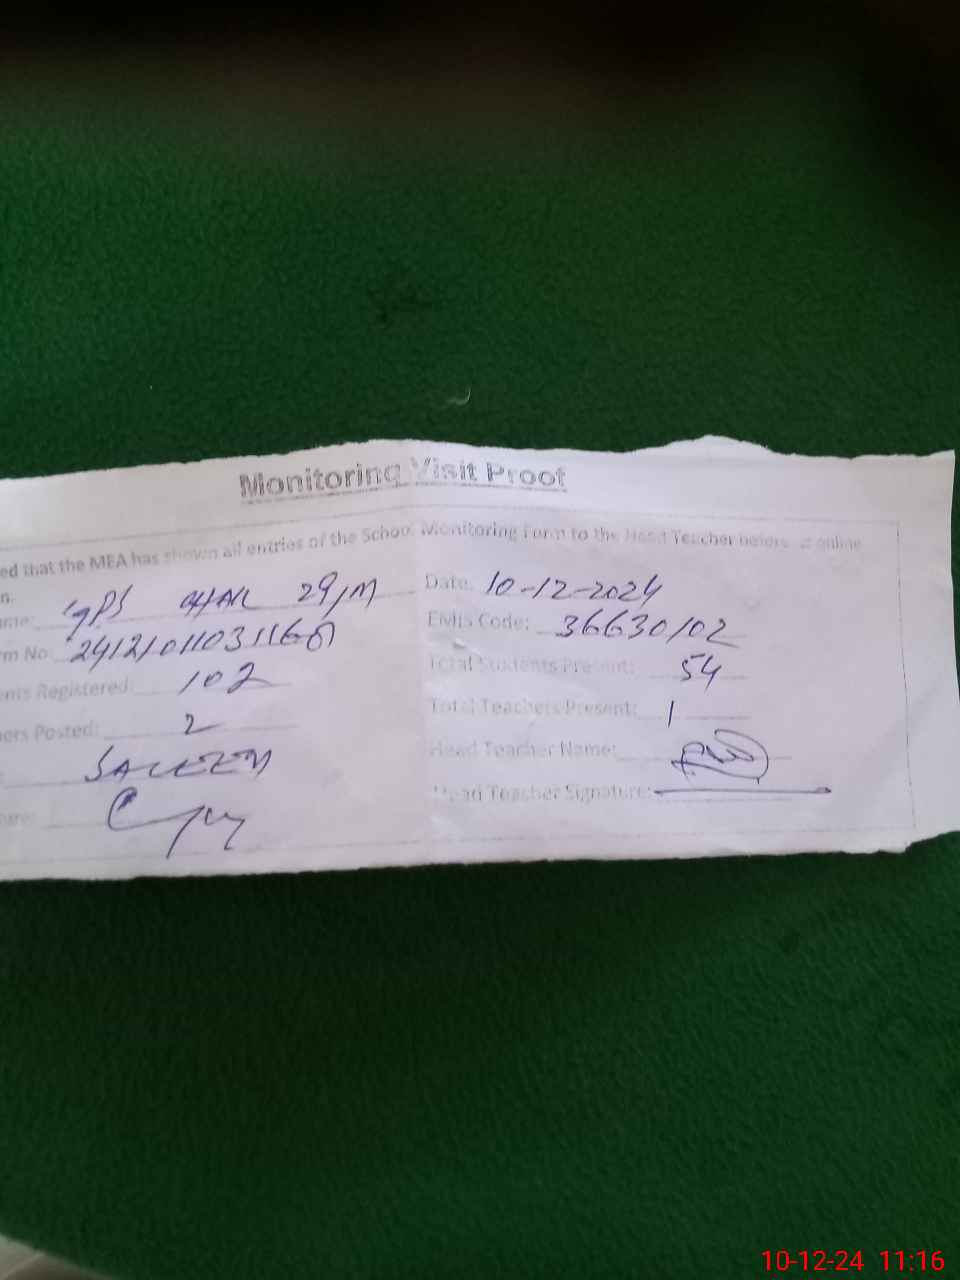 Monitoring Visit Proof
ed that the MEA has shown all entries of the School Monitoring Form to the Head Teacher before online
n.
ame: GPS 29/M Date: 10-12-2024
rm No: EMIS Code: 36630102
ents Registered: 102 Total Students Present: 54
ers Posted: 2 Total Teachers Present: 1
SALEEM Head Teacher Name:
ture: Head Teacher Signature:
10-12-24 11:16